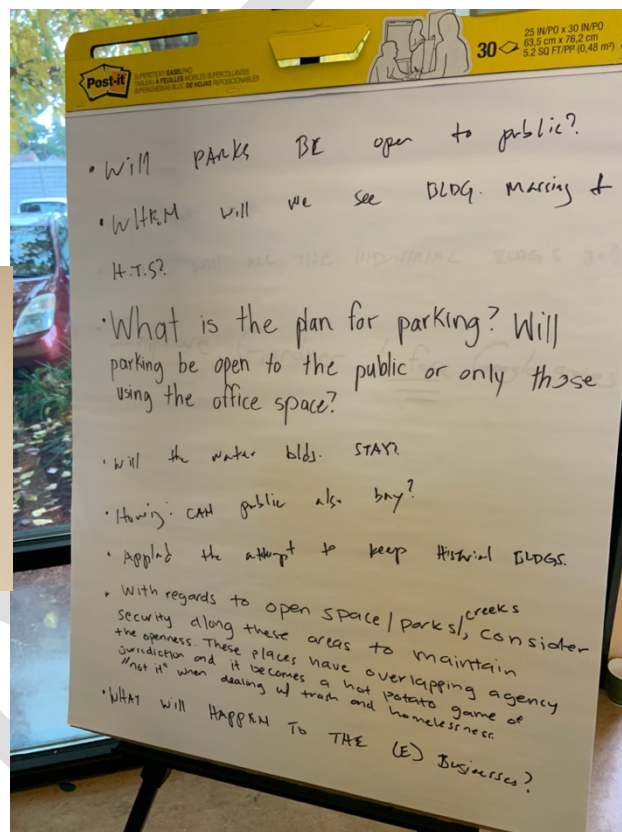 Post-it
SUPERSTICKY EASEL PAD
TABLEAU À FEUILLES MOBILES SUPERCOLLANTES
SUPERADHESIVAS BLOC DE HOJAS REPOSICIONABLES
30
25 IN/PO x 30 IN/PO
63,5 cm x 76,2 cm
5.2 SQ FT/PI² (0,48 m²)
• Will PARKS BE open to public?
• WHEN will we see BLDG. Massing &
H.T.S?
• What is the plan for parking? Will
parking be open to the public or only those
using the office space?
• Will the water bldg. STAY?
• How'g: CAN public also buy?
• Applad the attempt to keep Historical BLDGS.
• With regards to open space/parks/creeks, consider
security along these areas to maintain
the openness. These places have overlapping agency
jurisdiction and it becomes a hot potato game of
"not it" when dealing w/ trash and homelessness.
• WHAT will HAPPEN TO THE (E) Businesses?